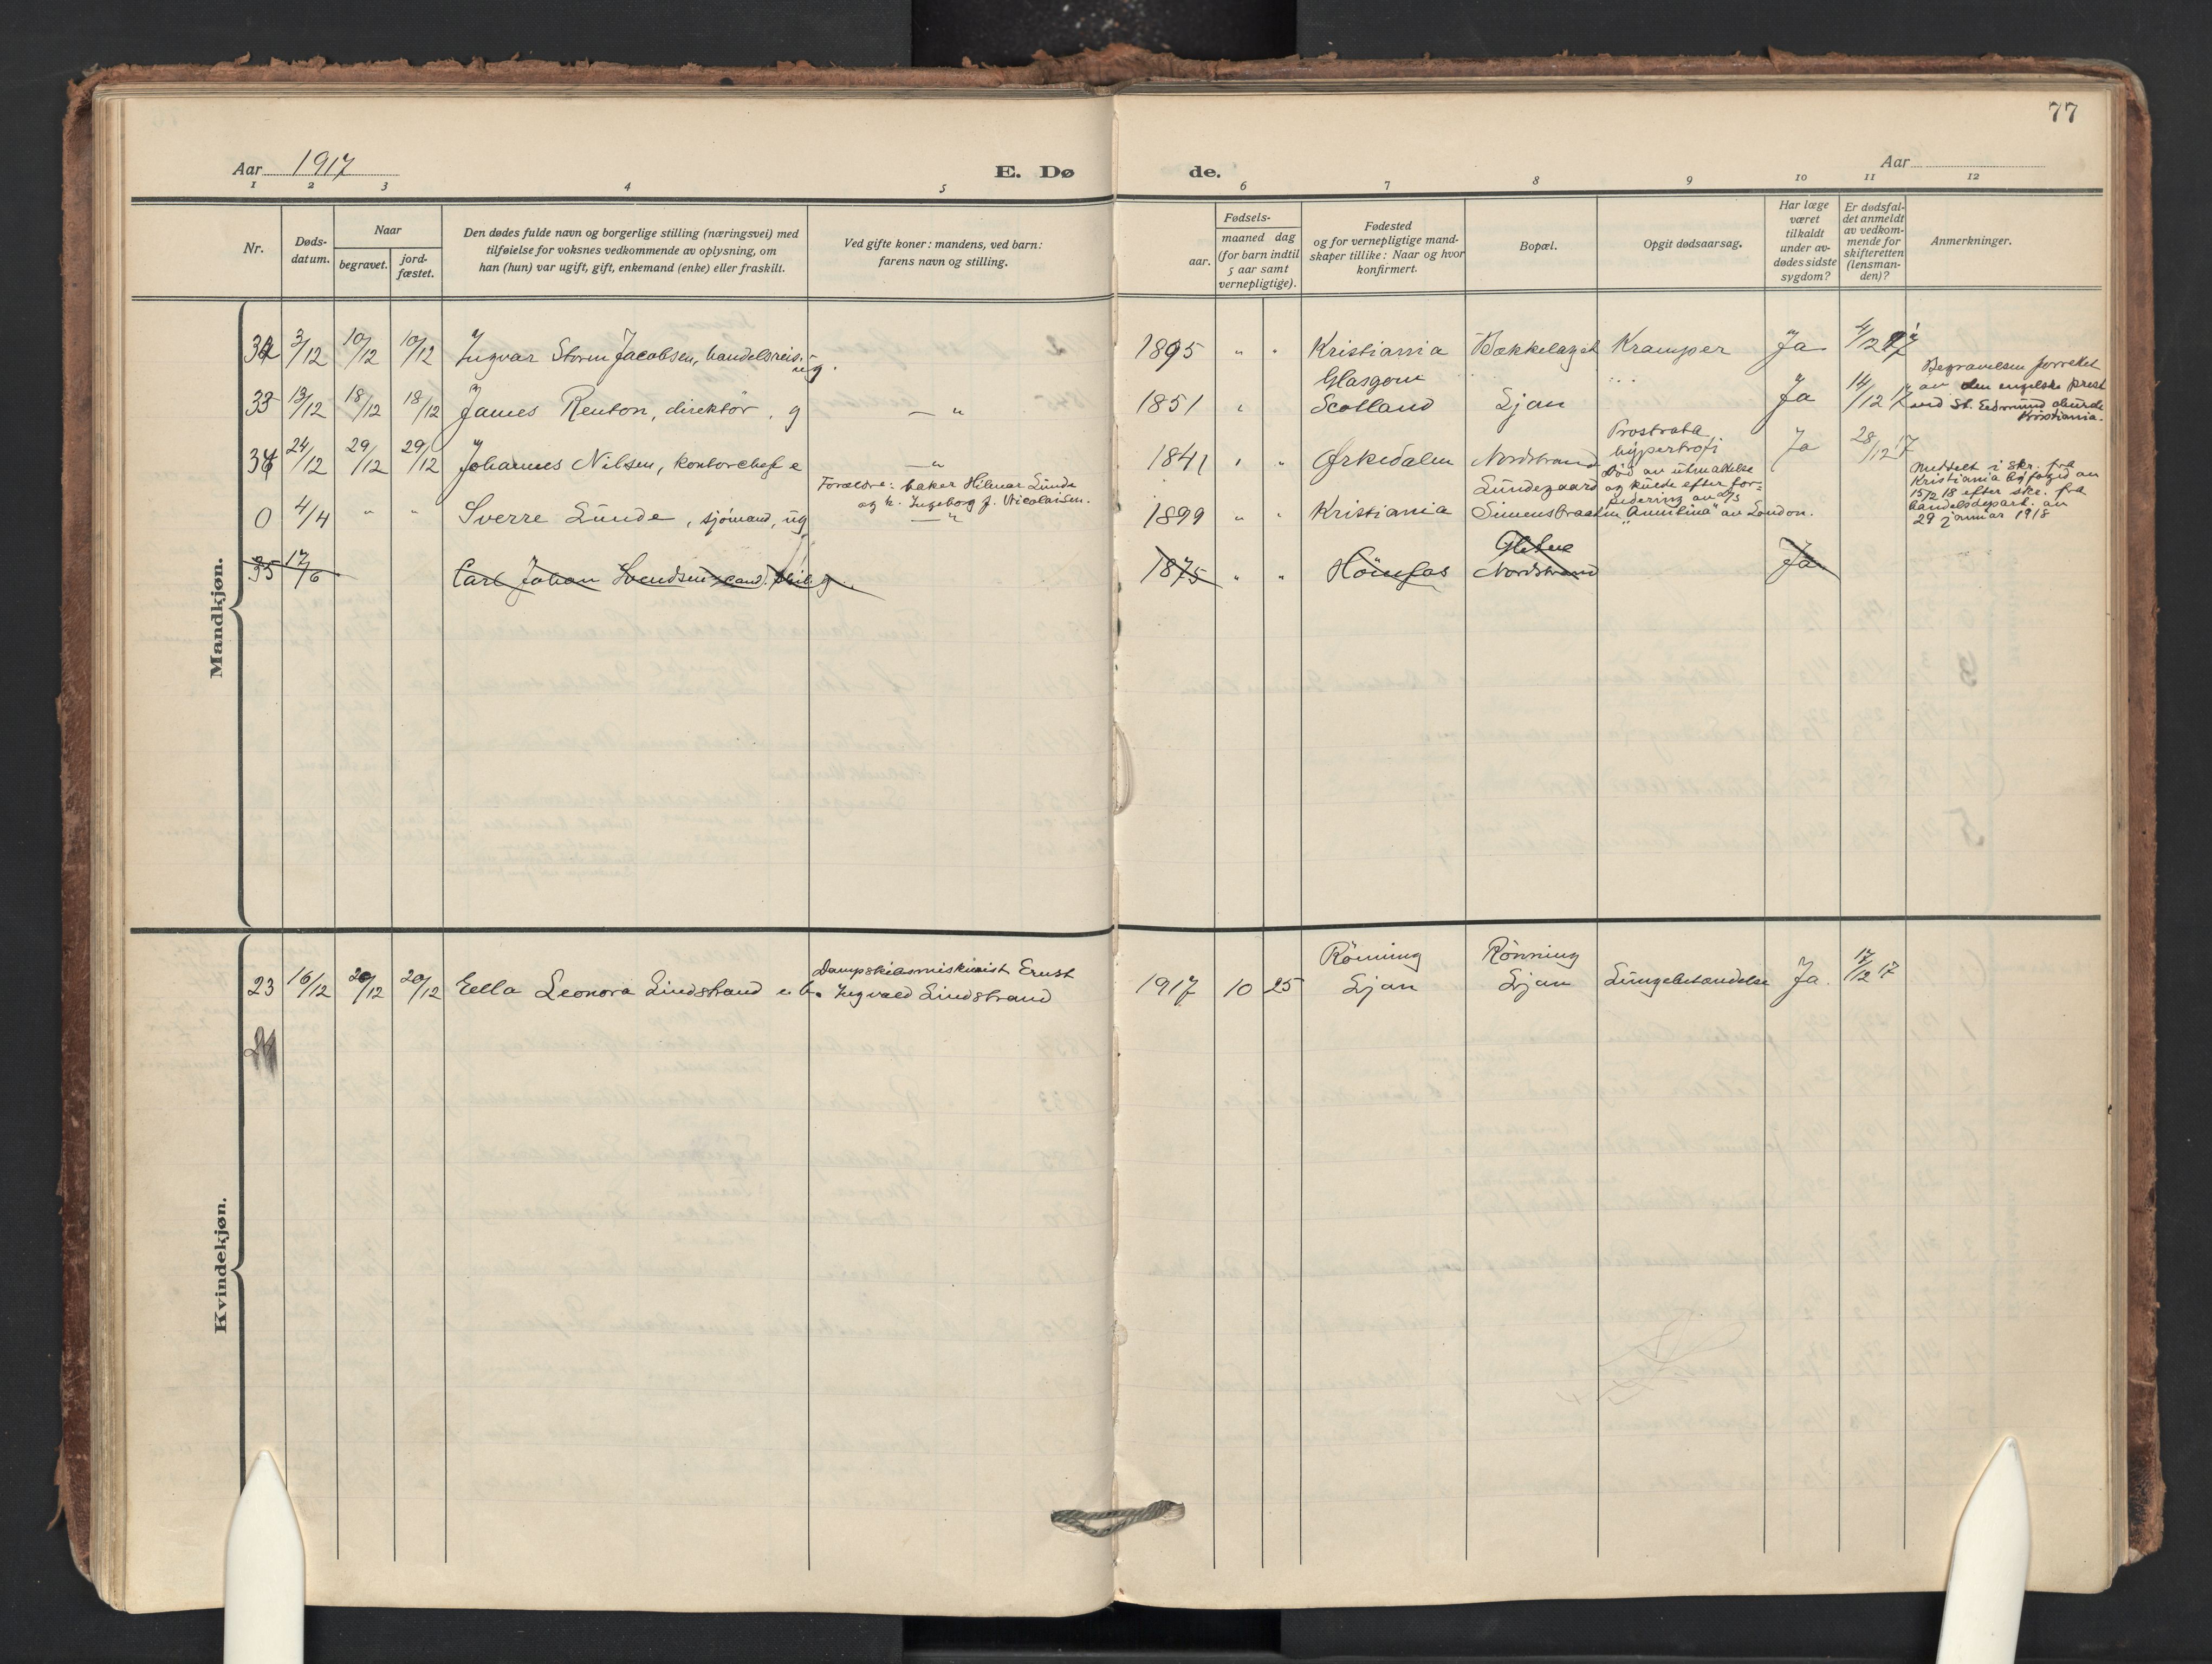 77
Aar 1917
E. Dø
de.
Aar
1 2 3 4 5 6 7 8 9 10 11 12
Nr.
Døds-
datum.
Naar
begravet.
jord-
fæstet.
Den dødes fulde navn og borgerlige stilling (næringsvei) med
tilføielse for voksnes vedkommende av oplysning, om
han (hun) var ugift, gift, enkemand (enke) eller fraskilt.
Ved gifte koner: mandens, ved barn:
farens navn og stilling.
Fødsels-
aar.
maaned dag
(for barn indtil
5 aar samt
vernepligtige).
Fødested
og for vernepligtige mand-
skaper tillike: Naar og hvor
konfirmert.
Bopæl.
Opgit dødsaarsag.
Har læge
været
tilkaldt
under av-
dødes sidste
sygdom?
Er dødsfal-
det anmeldt
av vedkom-
mende for
skifteretten
(lensman-
den)?
Anmerkninger.
Mandkjøn.
32 3/12 10/12 10/12 Ingvar Storm Jacobsen, handelsreis. ug. 1895 " " Kristiania Bækkelaget Kramper Ja 4/12 17
33 13/12 18/12 18/12 James Renton, direktør, g — " 1851 " Glasgow
Scotland Ljan Ja 14/12 17 Begravelsen forrettet
av den engelske prest
ved St. Edmund church
Kristiania.
34 24/12 29/12 29/12 Johannes Nilsen, kontorchef e — " 1841 " " Ørkedalen Nordstrand Prostrata
hypertrofi Ja 28/12 17
0 4/4 " " Sverre Lunde, sjømand, ug. Forældre: baker Hilmar Lunde
og h. Ingeborg f. Nicolaisen.
— " 1899 " " Kristiania Lundegaard
Simensbraaten Død av utmattelse
og kulde efter for-
"Annilina" av London.
Meddelt i skr. fra
Kristiania byfoged av
15/2 18 efter skr. fra
handelsdepart. av
29 januar 1918
35 17/6 Carl Johan Svendsen, cand. phil. g. 1875 " " Høinfos Nordstrand Ja
Kvindekjøn.
23 16/12 20/12 20/12 Eella Leonora Lindstrand e.b. Dampskibsmaskinist Ernst
Ingvald Lindstrand 1917 10 25 Rønning
Ljan Rønning
Ljan Lungebetændelse Ja. 17/12 17